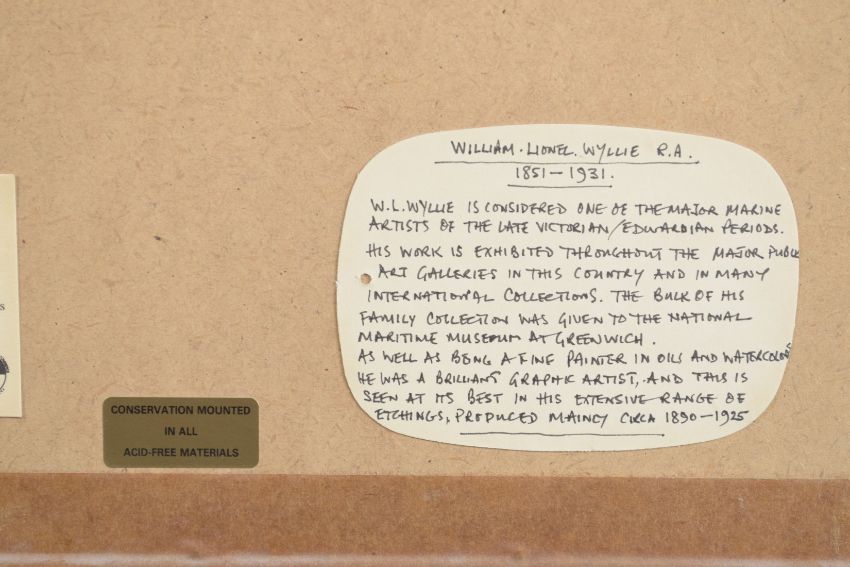 WILLIAM. LIONEL. WYLLIE R.A.
1851-1931.
W.L. WYLLIE IS CONSIDERED ONE OF THE MAJOR MARINE
ARTISTS OF THE LATE VICTORIAN/EDWARDIAN PERIODS.
HIS WORK IS EXHIBITED THROUGHOUT THE MAJOR PUBLIC
ART GALLERIES IN THIS COUNTRY AND IN MANY
INTERNATIONAL COLLECTIONS. THE BULK OF HIS
FAMILY COLLECTION WAS GIVEN TO THE NATIONAL
MARITIME MUSEUM AT GREENWICH.
AS WELL AS BEING A FINE PAINTER IN OILS AND WATERCOLOURS
HE WAS A BRILLIANT GRAPHIC ARTIST, AND THIS IS
SEEN AT ITS BEST IN HIS EXTENSIVE RANGE OF
ETCHINGS, PRODUCED MAINLY CIRCA 1890-1925
CONSERVATION MOUNTED
IN ALL
ACID-FREE MATERIALS